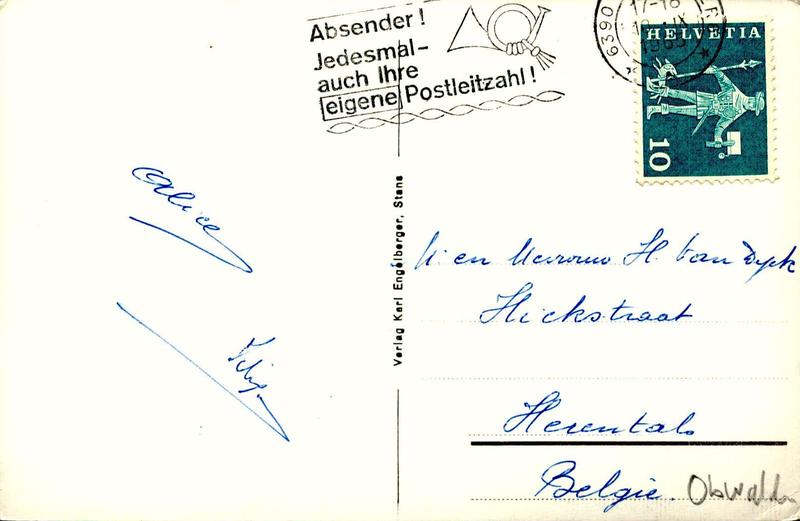 Absender!
Jedesmal-
auch Ihre
eigene Postleitzahl!
6390
17-18
1965
HELVETIA
10
Alice
Verlag Karl Engelberger, Stans
M. en Mevrouw H. Van Dyck
Hickstraat
Herentals
België.
Obwalden